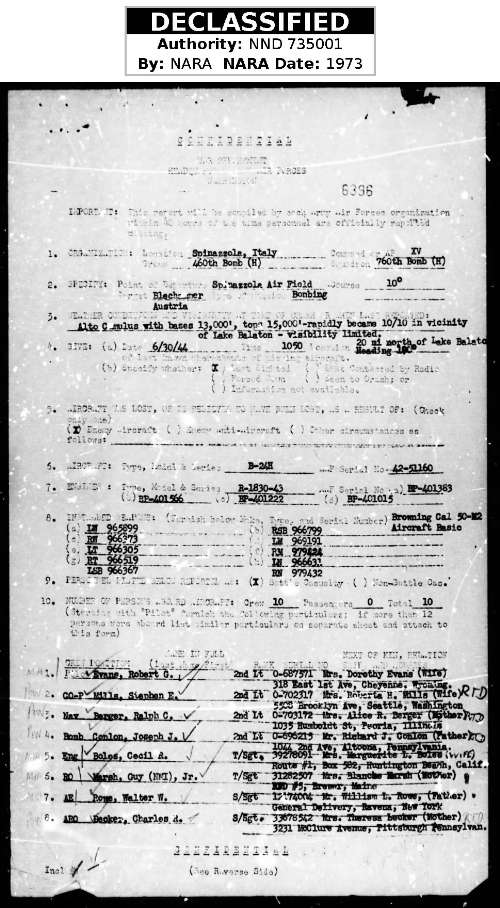 DECLASSIFIED
Authority: NND 735001
By: NARA NARA Date: 1973
CONFIDENTIAL
WAR DEPARTMENT
HEADQUARTERS ARMY AIR FORCES
WASHINGTON
6396
IMPORTANT: This report will be compiled by each Army Air Forces organization
within 48 hours of the time personnel are officially reported
missing.
1. ORGANIZATION: Location Spinazzola, Italy Command or AF XV
Group 460th Bomb (H) Squadron 760th Bomb (H)
2. SPECIFY: Point of Departure Spinazzola Air Field Course 10°
Target Blechhammer Type of Mission Bombing
Austria
3. WEATHER CONDITIONS
Alto Cumulus with bases 13,000', tops 15,000'-rapidly became 10/10 in vicinity
of Lake Balaton - visibility limited.
4. GIVE: (a) Date 6/30/44 Time 1050 Location 20 mi north of Lake Balaton
of last known whereabouts of missing aircraft. Heading
(b) Specify whether: X Last Sighted ( ) Last Contacted by Radio
( ) Forced Down ( ) Seen to Crash; or
( ) Information not available.
5. AIRCRAFT WAS LOST, OR IS BELIEVED TO HAVE BEEN LOST, AS A RESULT OF: (Check
only one)
(X) Enemy Aircraft ( ) Enemy Anti-Aircraft ( ) Other circumstances as
follows:
6. AIRCRAFT: Type, Model & Series B-24H AAF Serial No. 42-51160
7. ENGINES: Type, Model & Series R-1830-43 AAF Serial No (a) BP-401383
(b) BP-401566 (c) BP-401222 (d) BP-401015
8. INSTALLED WEAPONS: (Furnish below Make, Type, and Serial Number) Browning Cal 50-M2
(a) LN 965899 RSB 966799 Aircraft Basic
RN 966373 LM 969191
LT 966305 RM 979424
RT 966519 LN 966631
LSB 966367 RN 979432
9. PERSONNEL LISTED BELOW REPORTED AS: (X) Battle Casualty ( ) Non-Battle Cas.
10. NUMBER OF PERSONS ABOARD AIRCRAFT: Crew 10 Passengers 0 Total 10
(Starting with "Pilot" furnish the following particulars; if more than 12
persons were aboard list similar particulars on separate sheet and attach to
this form)
NAME IN FULL NEXT OF KIN, RELATION
(Last Name First) RANK
1. Pilot Evans, Robert G. 2nd Lt 0-687571 Mrs. Dorothy Evans (Wife)
318 East 1st Ave, Cheyenne, Wyoming.
2. CO-P Mills, Stephen E. 2nd Lt 0-702317 Mrs. Roberta H. Mills (Wife) RTD
5508 Brooklyn Ave, Seattle, Washington
3. Nav Berger, Ralph C. 2nd Lt 0-703172 Mrs. Alice R. Berger (Mother) RTD
1035 Humboldt St, Peoria, Illinois
4. Bomb Conlon, Joseph J. 2nd Lt 0-696215 Mr. Richard J. Conlon (Father) RTD
1044 2nd Ave, Altoona, Pennsylvania.
5. Eng Boles, Cecil A. T/Sgt. 39278091 Mrs. Marguerite L. Boles (WIFE)
Route #1, Box 502, Huntington Beach, Calif.
6. RO Marsh, Guy (NMI), Jr. T/Sgt. 31282507 Mrs. Blanche Marsh (Mother)
RFD #5, Brewer, Maine
7. AE Rowe, Walter W. S/Sgt 12174004 Mr. William L. Rowe, (Father)
General Delivery, Ravena, New York
8. ARO Becker, Charles A. S/Sgt. 33678542 Mrs. Theresa Becker (Mother) RTD
3231 McClure Avenue, Pittsburgh Pennsylvan.
CONFIDENTIAL
Incl (See Reverse Side)